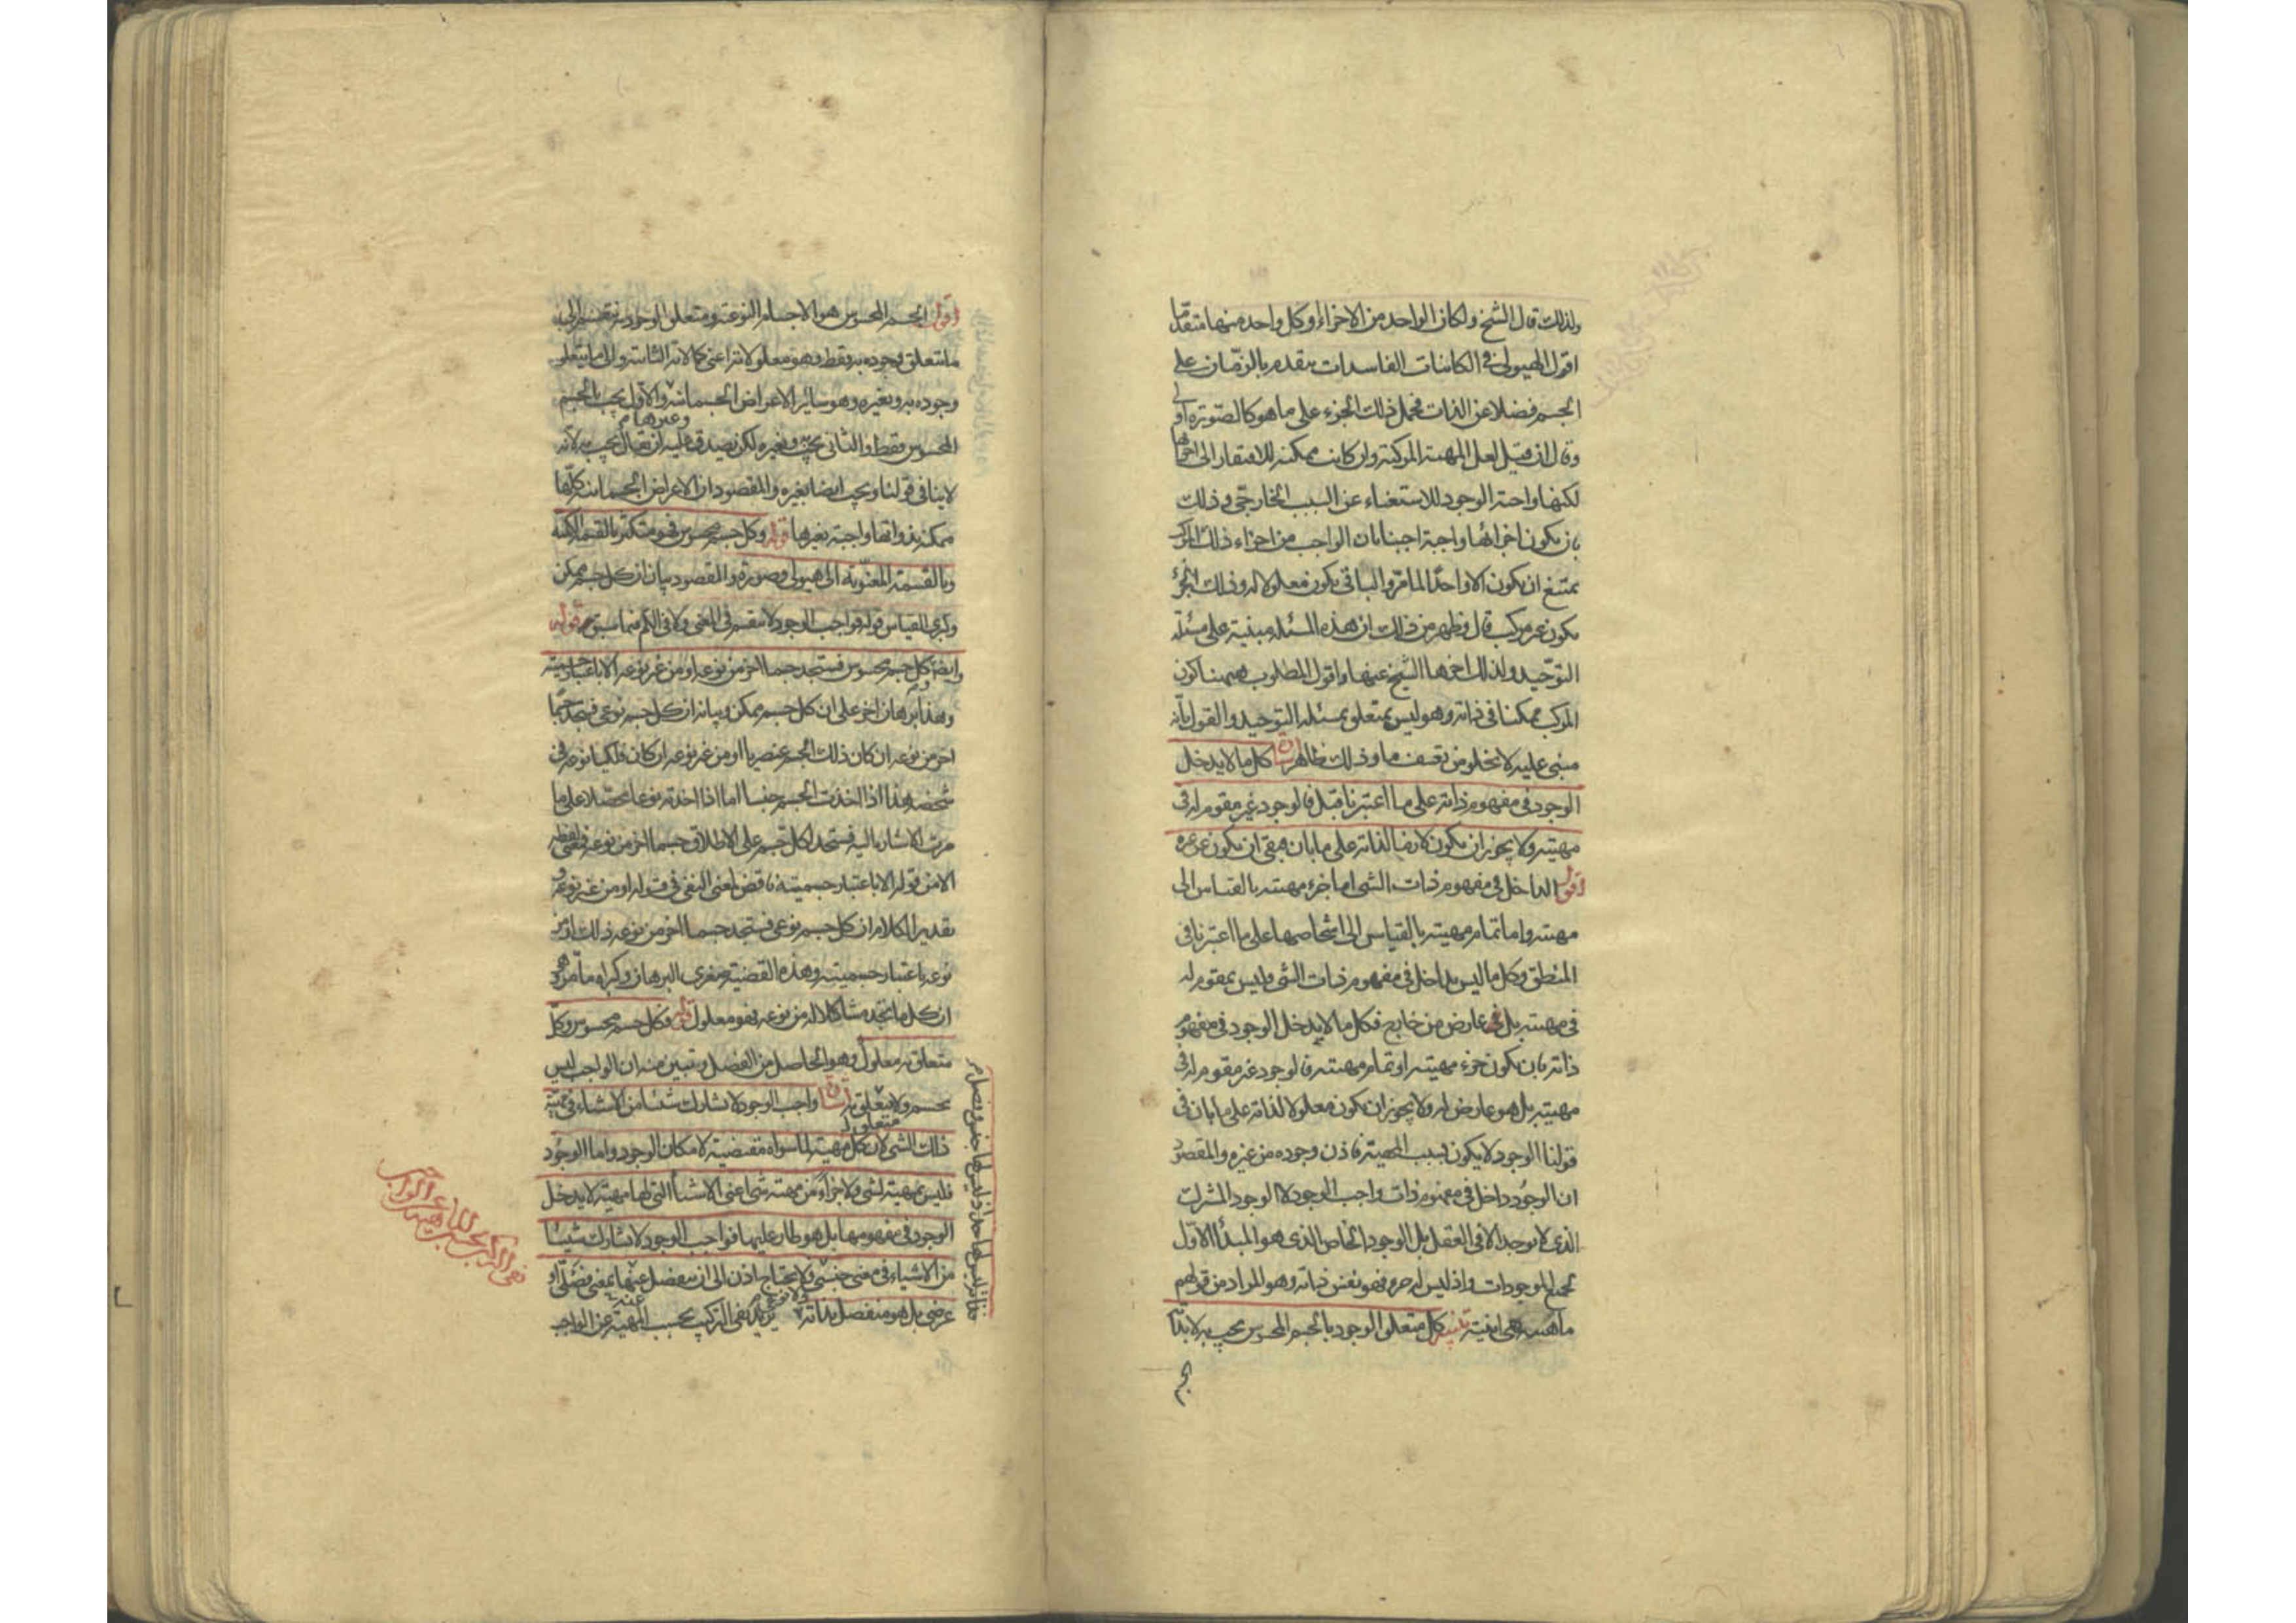 ولذلك قال الشيخ ولكان الواحد من الاجزاء او كل واحد منها متقدما
اقول الهيولى في الكائنات الفاسدات يتقدم بالزمان على
الجسم فضلا عن الذات فحمل ذلك الجزء على ما هو كالصورة اولى
وقال ان قيل لعل المهية المركبة وان كانت ممكنة للافتقار الى اجزائها
لكنها واجبة الوجود للاستغناء عن السبب الخارجي وذلك
بان يكون اجزائها واجبة اجبنا بان الواجب من اجزاء ذلك المركب
يمتنع ان يكون الا واحدا لما مر والباقي يكون معلولا له وذلك الجزء
يكون غير مركب قال وظهر من ذلك ان هذه المسئلة مبنية على مسئلة
التوحيد ولذلك اخرها الشيخ عنها واقول المطلوب ههنا كون
المركب ممكنا في ذاته وهو ليس بمتعلق بمسئلة التوحيد والقول بانه
مبني عليه لا يخلو من تعسف ما وذلك ظاهر كل ما لا يدخل
الوجود في مفهوم ذاته على ما اعتبرنا قبل فالوجود غير مقوم له في
مهيته ولا يجوز ان يكون لازما لذاته على ما بان فبقي ان يكون عن غيره
اقول الداخل في مفهوم ذات الشى اما جزء مهيته بالقياس الى
مهيته واما تمام مهيته بالقياس الى اشخاصها على ما اعتبرنا في
المنطق وكل ما ليس بداخل في مفهوم ذات الشى وليس بمقوم له
في مهيته بل هو عارض من خارج فكل ما لا يدخل الوجود في مفهوم
ذاته بان يكون جزء مهيته او تمام مهيته فالوجود غير مقوم له في
مهيته بل هو عارض له ولا يجوز ان يكون معلولا لذاته على ما بان في
قولنا الوجود لا يكون بسبب المهية فاذن وجوده من غيره والمقصود
ان الوجود داخل في مفهوم ذات واجب الوجود لا الوجود المشترك
الذي لا يوجد الا في العقل بل الوجود الخاص الذي هو المبدأ الاول
لجميع الموجودات واذ ليس له جزء فهو نفس ذاته وهو المراد من قولهم
ماهيته هي انيته تنبيه كل متعلق الوجود بالجسم المحسوس يجب به لا بذاته
اقول الجسم المحسوس هو الاجسام النوعية ومتعلق الوجود به ينقسم الى
ما يتعلق وجوده به فقط وهو معلولاته اعني كمالاته الثانية والى ما يتعلق
وجوده به وبغيره وهو سائر الاعراض الجسمانية والاول يجب بالجسم
وغيرها م
المحسوس فقط والثاني يجب به وبغيره لكن يصدق عليه ان يقال يجب به لانه
لا ينافي قولنا ويجب ايضا بغيره والمقصود ان الاعراض الجسمانية كلها
ممكنة بذواتها واجبة بغيرها قوله وكل جسم محسوس فهو متكثر بالقسمة الكمية
وبالقسمة المعنوية الى هيولى وصورة والمقصود بيان ان كل جسم ممكن
وكبرى القياس قوله فواجب الوجود لا ينقسم في المعنى ولا في الكم فيما سبق قوله
وايضا كل جسم محسوس فستجد جسما اخر من نوعه او من غير نوعه الا باعتبار جسميته
وهذا برهان اخر على ان كل جسم ممكن وبيانه ان كل جسم نوعي فستجد جسما
اخر من نوعه ان كان ذلك الجسم عنصريا او من غير نوعه ان كان فلكيا نوعه في
شخصه هذا اذا اخذت الجسم جنسا اما اذا اخذته نوعا محصلا على ما
مرت الاشارة اليه فستجد لكل جسم على الاطلاق جسما اخر من نوعه فلفظة
الا من قوله الا باعتبار جسميته ناقض لمعنى النفي في قوله او من غير نوعه و
تقدير الكلام ان كل جسم نوعي فستجد جسما اخر من نوعه ذلك او من
نوعه باعتبار جسميته وهذه القضية صغرى البرهان وكبراه ما مر وهو
ان كل ما تجد مشاكلا له من نوعه فهو معلول قوله فكل جسم محسوس وكل
متعلق به معلول وهو الحاصل من الفصل وتبين منه ان الواجب ليس
بجسم ولا متعلق به واجب الوجود لا يشارك شيئا من الاشياء في مهية
ذلك الشى لان كل مهية لما سواه مقتضية لامكان الوجود واما الوجود
فليس بمهية لشى ولا جزأ من مهية شى اعني الاشيأ التي لها مهية لا يدخل
الوجود في مفهومها بل هو طار عليها فواجب الوجود لا يشارك شيئا
من الاشياء في معنى جنسي ولا نوعي فلا يحتاج اذن الى ان ينفصل عنها بمعنى فصلي او
عرضي بل هو منفصل بذاته يريد نفي التركيب بحسب المهية عن الواجب
نفي التركيب بحسب المهية عن الواجب